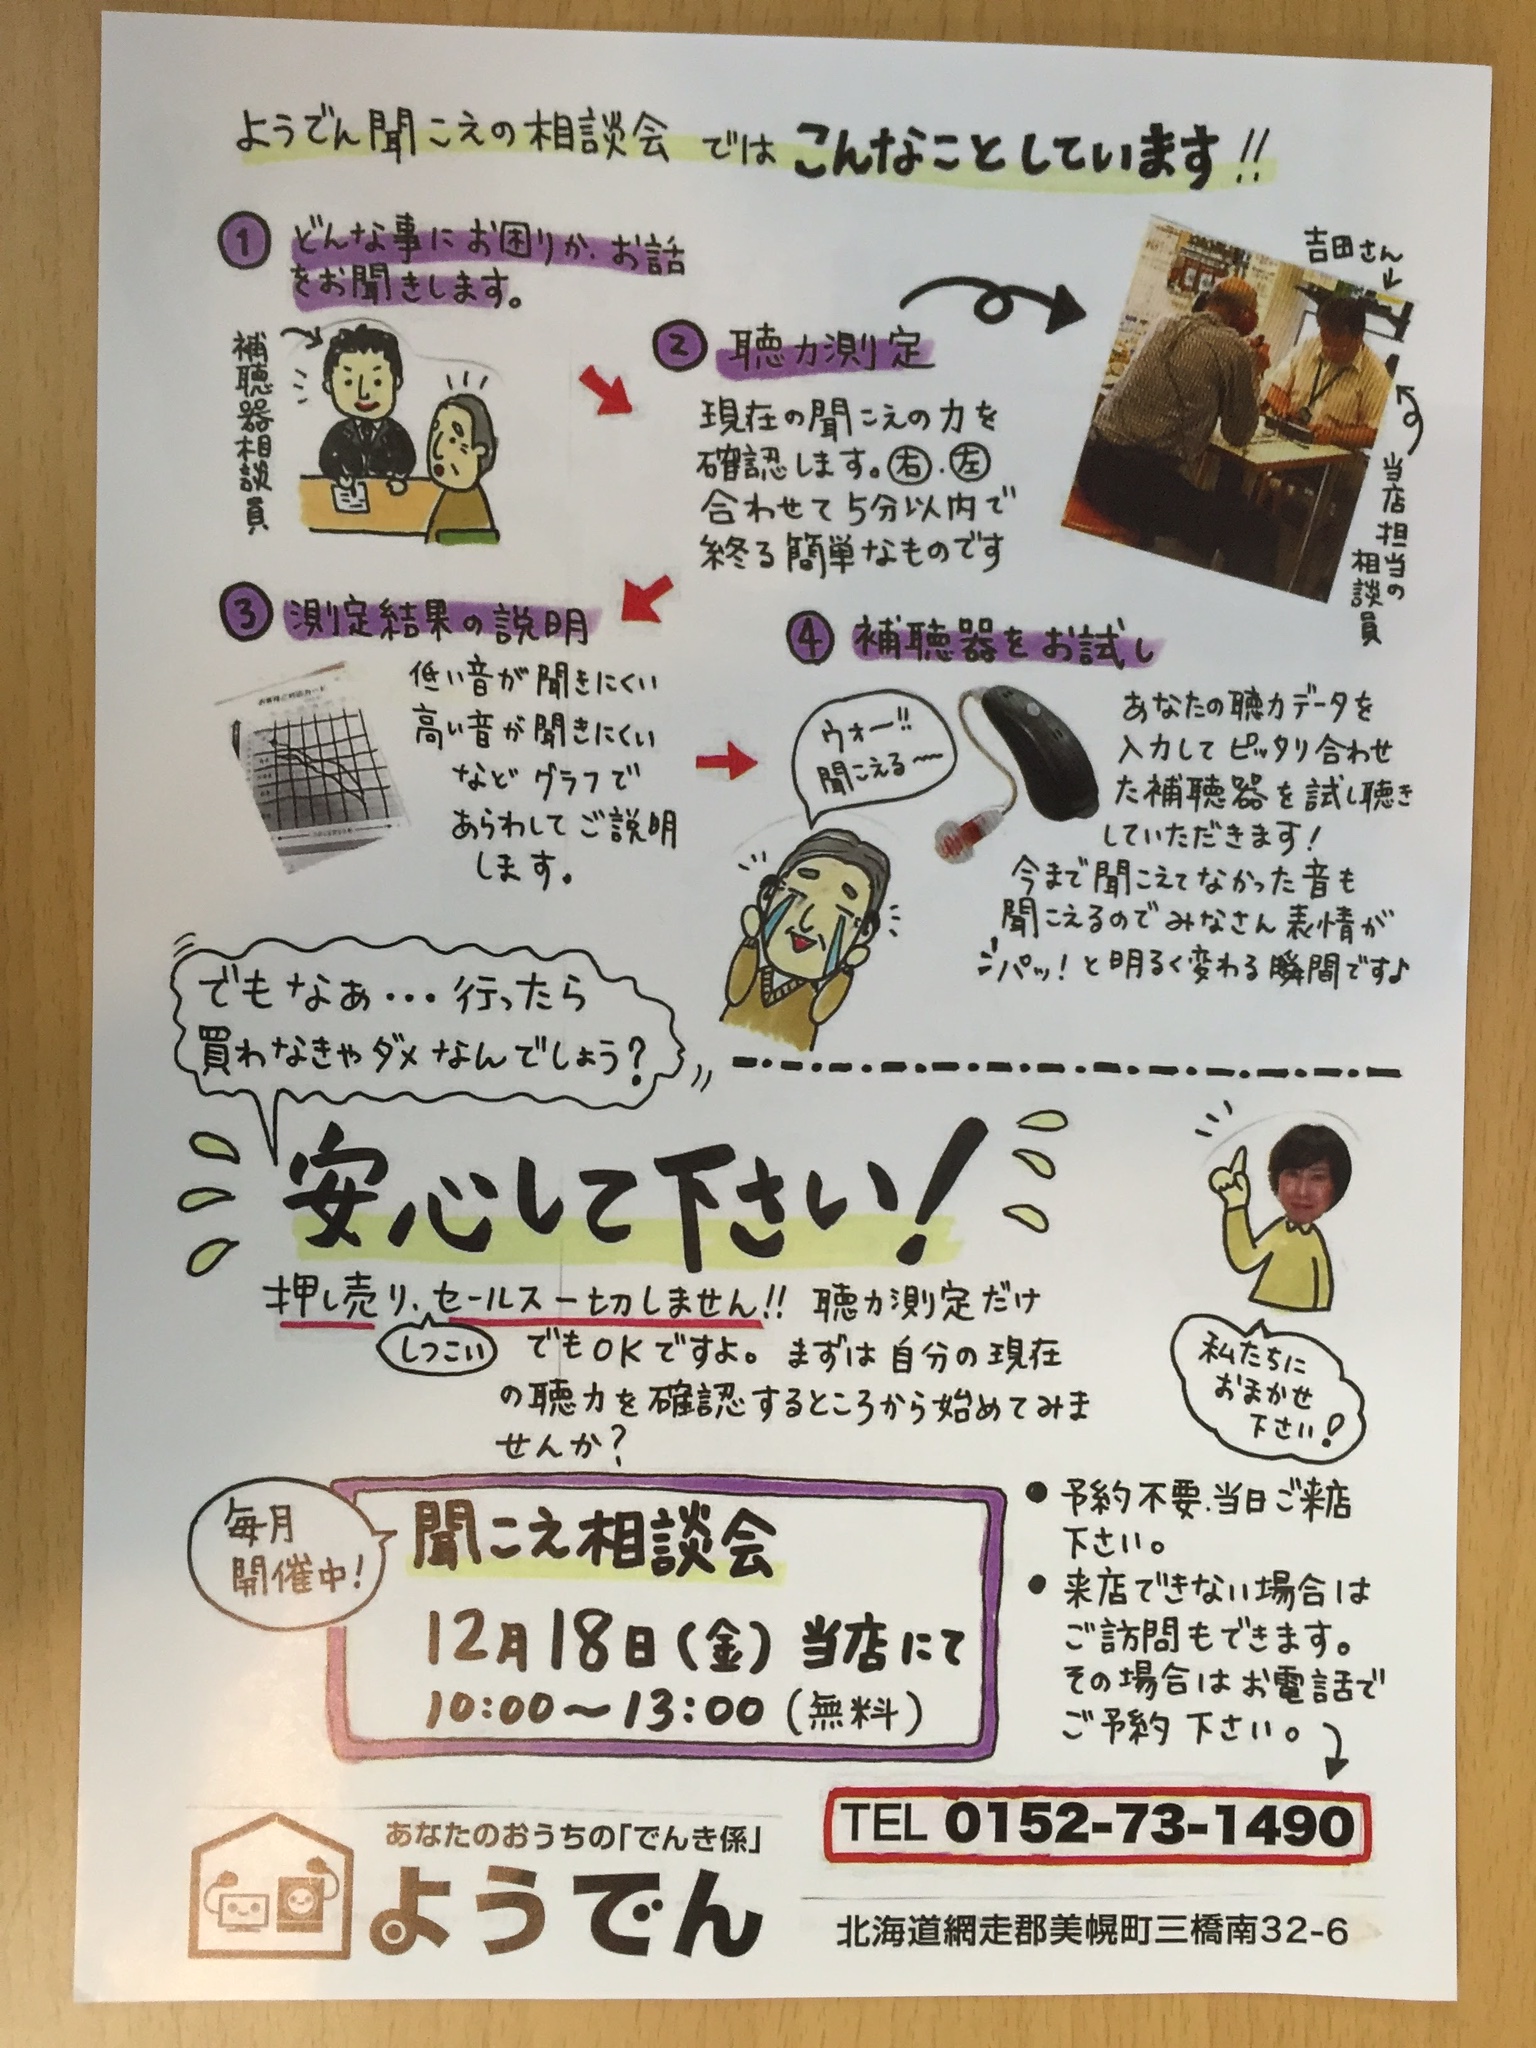 ようでん聞こえの相談会 では こんなことしています!!
① どんな事にお困りか、お話
をお聞きします。
補聴器相談員
② 聴力測定
現在の聞こえの力を
確認します。右・左
合わせて5分以内で
終る簡単なものです
吉田さん
当店担当の
相談員
③ 測定結果の説明
低い音が聞きにくい
高い音が聞きにくい
などグラフで
あらわしてご説明
します。
④ 補聴器をお試し
ウォー!!
聞こえる〜
あなたの聴力データを
入力してピッタリ合わせ
た補聴器を試し聴き
していただきます!
今まで聞こえてなかった音も
聞こえるのでみなさん表情が
パッ!と明るく変わる瞬間です♪
でもなぁ・・・行ったら
買わなきゃダメなんでしょう?
安心して下さい!
押し売り、セールス一切しません!! 聴力測定だけ
しつこい
でもOKですよ。まずは自分の現在
の聴力を確認するところから始めてみま
せんか?
私たちに
おまかせ
下さい!
毎月
開催中!
聞こえ相談会
12月18日(金)当店にて
10:00〜13:00(無料)
● 予約不要、当日ご来店
下さい。
● 来店できない場合は
ご訪問もできます。
その場合はお電話で
ご予約下さい。
TEL 0152-73-1490
あなたのおうちの「でんき係」
ようでん
北海道網走郡美幌町三橋南32-6